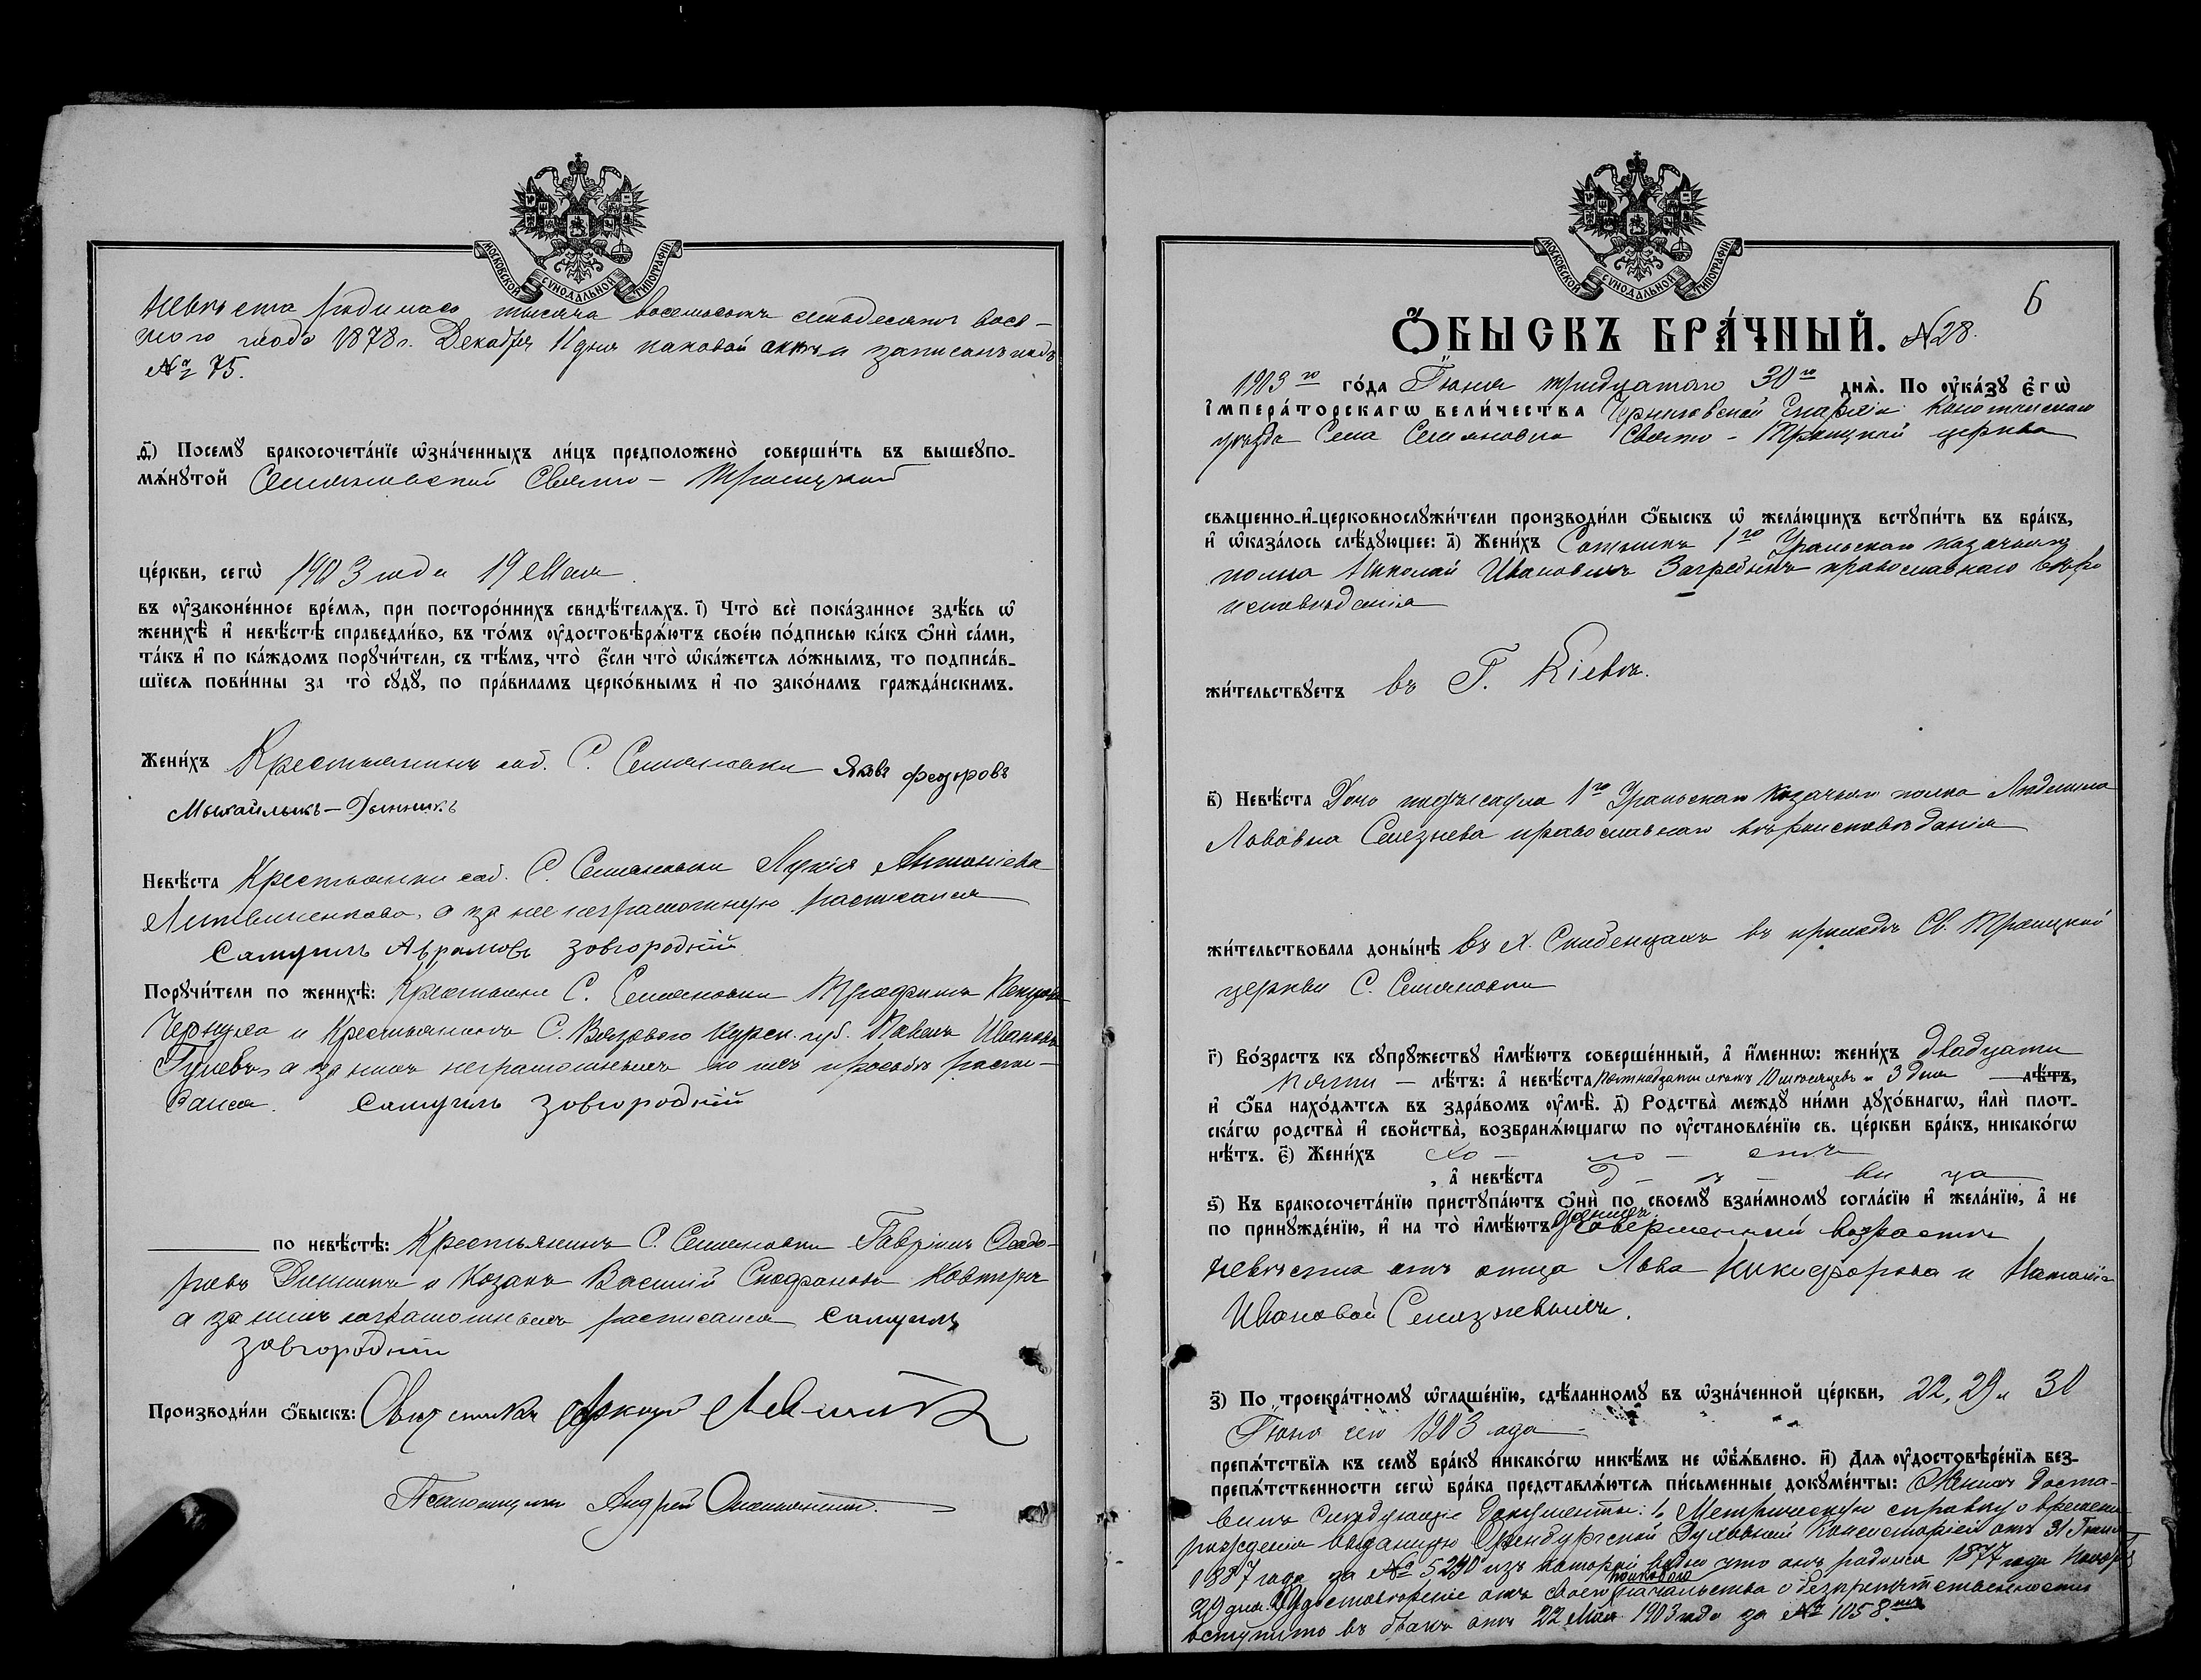 МОСКОВСКОЙ СѴНОДАЛЬНОЙ ТИПОГРАФІИ
Невѣста родилась тысяча восемьсотъ семьдесятъ вось-
мого года 1878 г. Декабря 11 дня каковой актъ и записанъ подъ
№ 75.
д҃) Посемꙋ̀ бракосочета́нїе ѡ҆зна́ченныхъ ли́цъ предположено̀ соверши́ть въ вышеꙋпо-
мѧ́нꙋтой Семяновской Свято-Троицкой
це́ркви, сегѡ̀ 1903 года 19 Мая
въ ᲂу҆законе́нное вре́мѧ, при посторо́ннихъ свидѣ́телѧхъ. і҃) Что̀ всѐ пока́занное здѣ́сь ѡ҆
женихѣ̀ и҆ невѣ́стѣ справедли́во, въ то́мъ ᲂу҆достовѣрѧ́ютъ свое́ю по́дписью ка́къ ѻ҆нѝ са́ми,
та́къ и҆ по ка́ждомъ порꙋчи́тели, съ тѣ́мъ, что̀ є҆́сли что̀ ѡ҆ка́жетсѧ ло́жнымъ, то подписа́в-
шїесѧ пови́нны за то̀ сꙋдꙋ̀, по пра́виламъ церко́внымъ и҆ по зако́намъ гражда́нскимъ.
Жени́хъ Крестьянинъ соб. С. Семяновки Яковъ Федоровъ
Михайлыкъ-Дынникъ
Невѣ́ста Крестьянки соб. С. Семяновки Лукія Антоніева
Литвиненкова, а за нее неграмотную расписался
Самуилъ Аврамовъ Зовгородній
Порꙋчи́тели по женихѣ̀: Крестьяне С. Семяновки Трофимъ
и Крестьянинъ С. Вязового Курск. губ. Павелъ Ивановъ
а за нихъ неграмотныхъ по ихъ просьбѣ распи-
сался. Самуилъ Зовгородній
по невѣ́стѣ: Крестьянинъ С. Семяновки Гавріилъ Ѳедо-
ровъ Дынникъ и Козакъ Василій Стефановъ
а за нихъ неграмотныхъ расписался Самуилъ
Зовгородній
Производи́ли ѻ҆́быскъ:
Псаломщикъ Андрей
МОСКОВСКОЙ СѴНОДАЛЬНОЙ ТИПОГРАФІИ
6
Ѻ҆́БЫСКЪ БРА́ЧНЫЙ. №28.
1903го го́да Іюня тридцатого 30го днѧ̀. По ᲂу҆ка́зꙋ є҆гѡ̀
і҆мпера́торскагѡ вели́чества Черниговской Епархіи Конотопскаго
уѣзда Села Семяновки Свято-Троицкой церкви
свѧщенно-и҆-церковнослꙋжи́тели производи́ли ѻ҆́быскъ ѡ҆ жела́ющихъ встꙋпи́ть въ бра́къ,
и҆ ѡ҆каза́лось слѣ́дꙋющее: а҃) Жени́хъ Сотникъ 1го Уральскаго казачьяго
полка Николай Ивановичъ православнаго вѣро
исповѣданія
жи́тельствꙋетъ въ Г. Кіевѣ.
в҃) Невѣ́ста Дочь подъесаула 1го Уральскаго казачьяго полка Людмила
Львовна Селезнева православнаго вѣроисповѣданія
жи́тельствовала доны́нѣ въ х. въ приходѣ Св. Троицкой
церкви С. Семяновки
г҃) Во́зрастъ къ сꙋпрꙋ́жествꙋ и҆мѣ́ютъ соверше́нный, а҆ и҆́меннѡ: жени́хъ двадцати
пяти — лѣ́тъ: а҆ невѣ́ста Пятнадцати лѣтъ 10 мѣсяцевъ и 3 дня — лѣ́тъ,
и҆ ѻ҆́ба нахо́дѧтсѧ въ здра́вомъ ᲂу҆мѣ̀. д҃) Родства̀ междꙋ̀ ни́ми дꙋхо́внагѡ, и҆лѝ плот-
ска́гѡ родства̀ и҆ свойства̀, возбранѧ́ющагѡ по ᲂу҆становле́нїю св. це́ркви бра́къ, никако́гѡ
нѣ́тъ. є҃) Жени́хъ хо — ло — стъ
, а҆ невѣ́ста д — ѣ — ви ца
ѕ҃) Къ бракосочета́нїю пристꙋпа́ютъ ѻ҆нѝ по своемꙋ̀ взаи́мномꙋ согла́сїю и҆ жела́нїю, а҆ не
по принꙋжде́нїю, и҆ на то̀ и҆мѣ́ютъ женихъ совершенный возрастъ
невѣста отъ отца Льва Никифорова и Наталіи
Ивановой Селезневыхъ.
з҃) По троекра́тномꙋ ѡ҆глаше́нїю, сдѣ́ланномꙋ въ ѡ҆зна́ченной це́ркви, 22, 29 и 30
Іюня сего 1903 года
препѧ́тствїѧ къ семꙋ̀ бра́кꙋ никако́гѡ никѣ́мъ не ѡ҆б̾ѧ́влено. и҃) Длѧ ᲂу҆достовѣре́нїѧ без-
препѧ́тственности сегѡ̀ бра́ка представлѧ́ютсѧ пи́сьменные докꙋме́нты: Женихъ доста-
вилъ слѣдующіе документы: 1, Метрическую справку о времени
рожденія выданную Оренбургской Духовной Консисторіей отъ 31 Іюля
1887 года за № 5290 изъ которой видно что онъ родился 1877 года Ноября
29 дня. Удостовѣреніе отъ своего полковаго начальства о безпрепятственности
вступить въ бракъ отъ 22 Мая 1903 года за № 1058